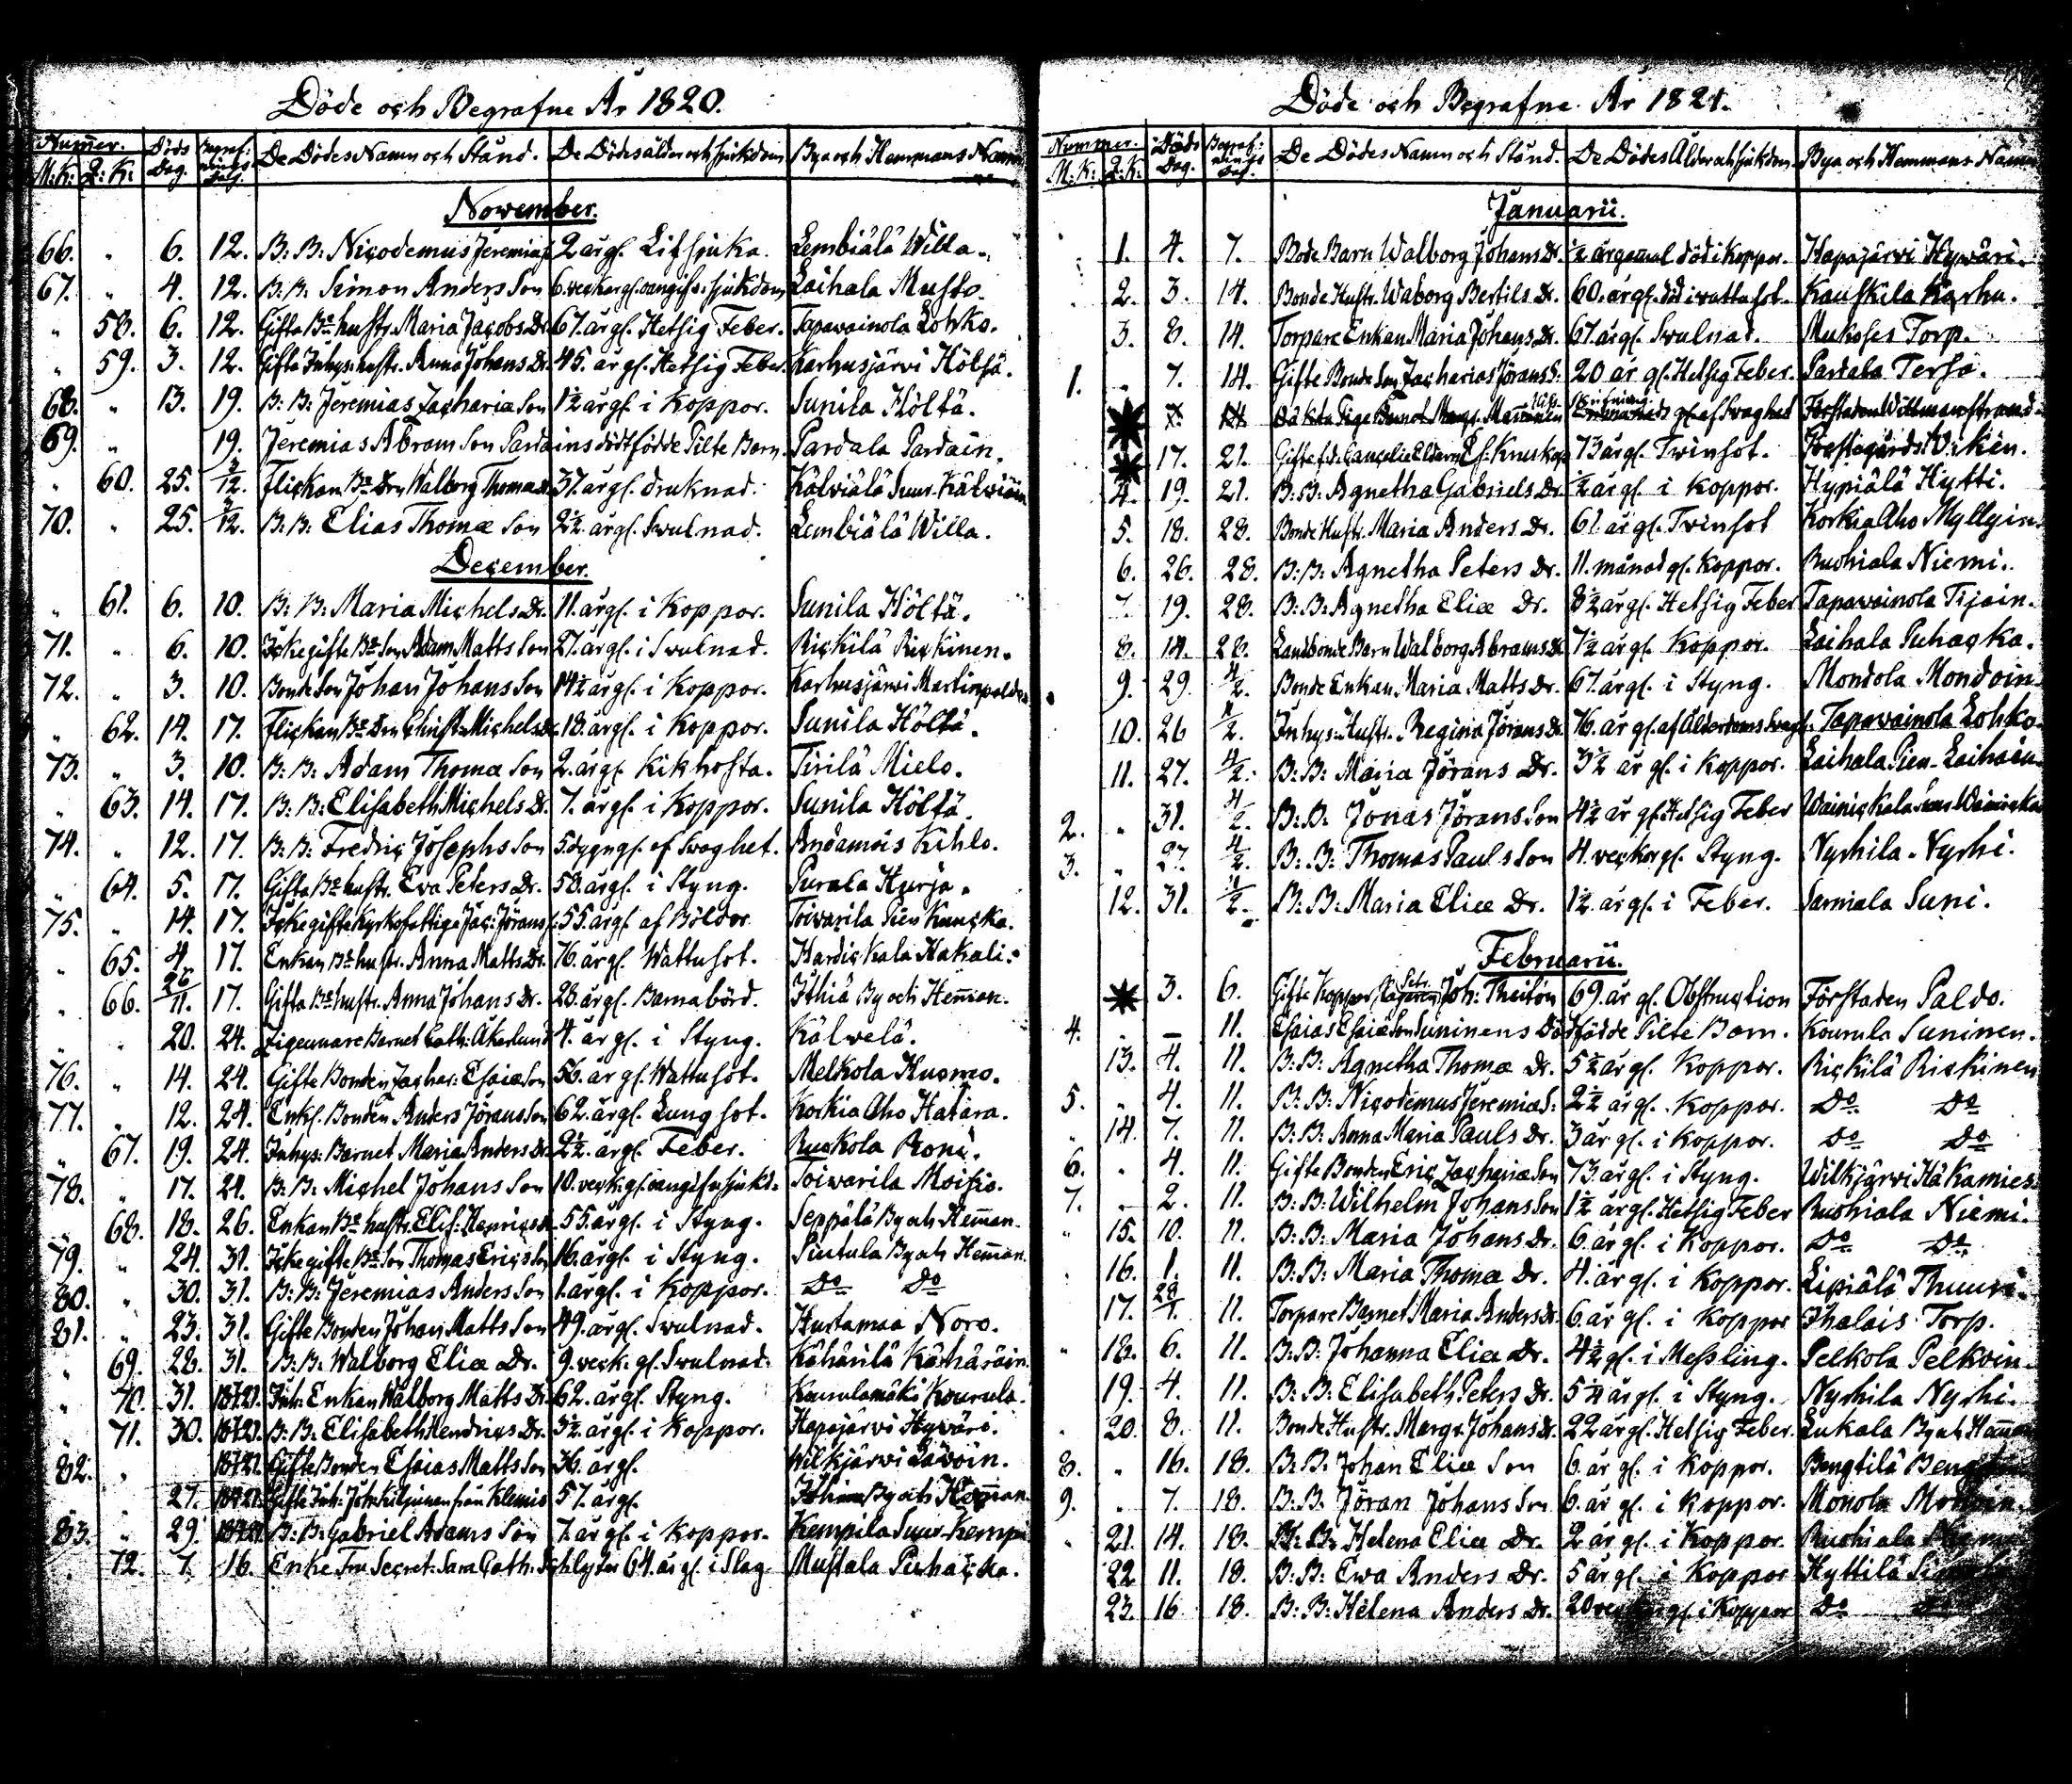 Döde och Begrafne År 1820.
Numer. Döds Dag. Begraf: nings dag. De Dödes Namn och Stånd. De Dödes ålder och sjukdom Bya och Hemmans Namn
M: K: Q: K:
November.
66. " 6. 12. B: B: Nicodemus Jeremiæ S. 2 årgl. Lifsjuka. Lembiälä Willa.
67. " 4. 12. B: B: Simon Anders Son 6. veckor gl. oangifv: sjukdom Laihala Musto.
" 58. 6. 12. Gifta Be hustr. Maria Jacobs Dr. 67. årgl. Hetsig Feber. Tapavainola Lohko.
" 59. 3. 12. Gifta Inhys: hustr. Anna Johans Dr. 45. årgl. Hetsig Feber. Karhusjärvi Höltä.
68. " 13. 19. B: B: Jeremias Zachariæ Son 1½ årgl. i Koppor. Sunila Höltä.
69. " 19. Jeremias Abram Son Pardains dödfödde Pilte Barn. Pardala Pardain.
" 60. 25. 3/12. Flickan Be Drn Walborg Thomæ Dr. 37. årgl. druknad. Kälviälä Suur-Kälviäin
70. " 25. 3/12. B: B: Elias Thomæ Son 2½ årgl. Swulnad. Lembiälä Willa.
December.
" 61. 6. 10. B: B: Maria Michels Dr. 11. årgl. i Koppor. Sunila Höltä.
71. " 6. 10. Icke gifte Be Son Adam Matts Son 27. årgl. i Swulnad. Rickilä Rickinen.
72. " 3. 10. Bonde Son Johan Johans Son 14½ årgl. i Koppor. Karhusjärvi Martinpoldin
" 62. 14. 17. Flickan Be Drn Christ: Michels Dr. 18. årgl. i Koppor. Sunila Höltä.
73. " 3. 10. B: B: Adam Thomæ Son 2. årgl. Kikhosta. Tirilä Mielo.
" 63. 14. 17. B: B: Elisabeth Michels Dr. 7. årgl. i Koppor. Sunila Höltä.
74. " 12. 17. B: B: Fredric Josephs Son 5. dygn gl. af Swaghet. Andamois Kihlo.
" 64. 5. 17. Gifta Be hustr. Eva Peters Dr. 58. årgl. i Styng. Purala Hurja.
75. " 14. 17. Icke gifte Kyrkofattige Jac: Jörans S. 55. årgl. af Böldor Toivarila Pien Kuucka.
" 65. 4. 17. Enkan Be hustr. Anna Matts Dr. 76. årgl. Wattusot. Hardickala Hakali.
" 66. 26/11. 17. Gifta Be hustr. Anna Johans Dr. 28. årgl. Barnabörd. Ithiä By och Hem̄an.
" " 20. 24. Zigeunare Barnet Cath: Åkerlund 4. årgl. i Styng. Kälwelä.
76. " 14. 24. Gifte Bonden Zachar: Esaiæ Son 56. årgl. Wattusot. Melkola Kuomo.
77. " 12. 24. Enkl. Bonden Anders Jörans Son 62. årgl. Lungsot. Korkia Aho Hatara.
" 67. 19. 24. Inhys: Barnet Maria Anders Dr. 2½. årgl. Feber. Ruokola Roni.
78. " 17. 24. B: B: Michel Johans Son 10. veck: gl. oangifv: sjukd: Toivarila Moisio.
" 68. 18. 26. Enkan Be hustr. Elis: Henrics Dr. 55. årgl. i Styng. Seppälä By och Hem̄an.
79. " 24. 31. Icke gifte Be Son Thomas Erics Son 16. årgl. i Styng. Pintula By och Hem̄an.
80. " 30. 31. B: B: Jeremias Anders Son 1. årgl. i Koppor. Do Do
81. " 23. 31. Gifte Bonden Johan Matts Son 49. årgl. Swulnad. Hurtamaa Noro.
" 69. 28. 31. B: B: Walborg Eliæ Dr. 9. veck: gl. Swulnad. Kähärilä Kähäräin.
" 70. 31. Inh: Enkan Walborg Matts Dr. 62. årgl. Styng. Kourulamäki Kourula.
" 71. 30. B: B: Elisabeth Hendrics Dr. 3½. årgl. i Koppor. Hapajärvi Hyväri.
82. " Gifte Bonden Esaias Matts Son 36. årgl. Wilkjärvi Lävöin.
27. Gifte Inh: Joh: Kiljunen från Klemis 57. årgl. Ithiä By och Hem̄an.
83. " 29. B: B: Gabriel Adams Son 7. årgl. i Koppor. Kempila Suur-Kempi
72. 7. 16. Enke Fru Secret: Sara Cath: Schlyter 64. årgl. i Slag Mustala Puhacka.
Döde och Begrafne År 1821.
Nummer. Döds Dag. Begraf: nings dag. De Dödes Namn och Stånd. De Dödes Ålder och sjukdom. Bya och Hemmans Namn
M: K: Q: K:
Januarii.
1. 4. 7. Bode Barn Walborg Johans Dr. ½ år gamal död i Koppor. Hapajärvi Hywäri.
2. 3. 14. Bonde Hustr. Waborg Bertils Dr. 60. årgl. död i wattusot. Kauskila Karhu.
3. 8. 14. Torpare Enkan Maria Johans Dr. 67. årgl. Swulnad. Mukoses Torp.
1. " 7. 14. Gifte Bonde Son Zacharias Jörans S. 20 år gl. Hetsig Feber. Pardala Terho.
Förstaden Willmanstrand
17. 21. 73 årgl. Twinsot. Prestegårds Wiken.
4. 19. 21. B: B: Agnetha Gabriels Dr. ½ årgl. i Koppor. Hyriälä Hytti.
5. 18. 28. Bonde Hustr. Maria Anders Dr. 61. årgl. Twinsot Korkia Aho Myllyin.
6. 26. 28. B: B: Agnetha Peters Dr. 11. månad gl. Koppor. Ruohiala Niemi.
7. 19. 28. B: B: Agnetha Eliæ Dr. 8½ årgl. Hetsig Feber Tapavainola Tijain.
8. 14. 28. Landbonde Barn Walborg Abrams Dr. 7½ årgl. Koppor. Laihala Puhacka.
9. 29. 4/2. Bonde Enkan Maria Matts Dr. 67. årgl. i Styng. Mondola Mondoin
10. 26 4/2. Inhys: Hustr. Regina Jörans Dr. 76. år gl. af Ålderdoms Swagh. Tapavainola Lohko.
11. 27. 4/2. B: B: Maria Jörans Dr. 3½ år gl. i Koppor. Laihala Pien-Laihain
2. " 31. 4/2. B: B: Jonas Jörans Son 4½ år gl. Hetsig Feber Wainickala Suur Wainicka
3. " 27. 4/2. B: B: Thomas Pauls Son 4. veckor gl. Styng. Nyrhila Nyrhi.
12. 31. 11/2. B: B: Maria Eliæ Dr. 1½ årgl. i Feber. Sarniala Suni.
Februarii.
3. 6. Gifte Joh: Theilon 69. år gl. Obstruction Förstaden Paldo.
4. " – 11. Esaias Esaiæ Son Suninens Dödfödde Pilte Barn. Kourula Suninen.
13. 4. 11. B: B: Agnetha Thomæ Dr. 5½ årgl. Koppor. Rickilä Rickinen
5. " 4. 11. B: B: Nicodemus Jeremiæ S: 2½ årgl. Koppor. Do Do
" 14. 7. 11. B: B: Anna Maria Pauls Dr. 3 år gl. i Koppor. Do Do
6. " 4. 11. Gifte Bonden Eric Zachariæ Son 73. årgl. i Styng. Wilkjärvi Häkamies
7. " 2. 11. B: B: Wilhelm Johans Son 1½ årgl. Hetsig Feber Ruohiala Niemi.
" 15. 10. 11. B: B: Maria Johans Dr. 6. år gl. i Koppor. Do Do
16. 1. 11. B: B: Maria Thomæ Dr. 4. år gl. i Koppor. Lipiälä Thuuri.
17. 28/1. 11. Torpare Barnet Maria Anders Dr. 6. år gl. i Koppor Ihalais Torp.
18. 6. 11. B: B: Johanna Eliæ Dr. 4½ gl. i Messling. Pelkola Pelkoin.
19. 4. 11. B: B: Elisabeth Peters Dr. 5½ årgl. i Styng. Nyrhila Nyrhi.
20. 8. 11. Bonde Hustr. Margr. Johans Dr. 22 årgl. Hetsig Feber. Lukala By och Hem̄an
8. " 16. 18. B: B: Johan Eliæ Son 6. år gl. i Koppor. Bengtilä
9. " 7. 18. B: B: Jöran Johans Son 6. år gl. i Koppor. Monola
" 21. 14. 18. B: B: Helena Eliæ Dr. 2 år gl. i Koppor Ruohiala
22. 11. 18. B: B: Ewa Anders Dr. 5 år gl. i Koppor Hyttilä
23. 16 18. B: B: Helena Anders Dr. 20 veckor gl. i Koppor Do Do